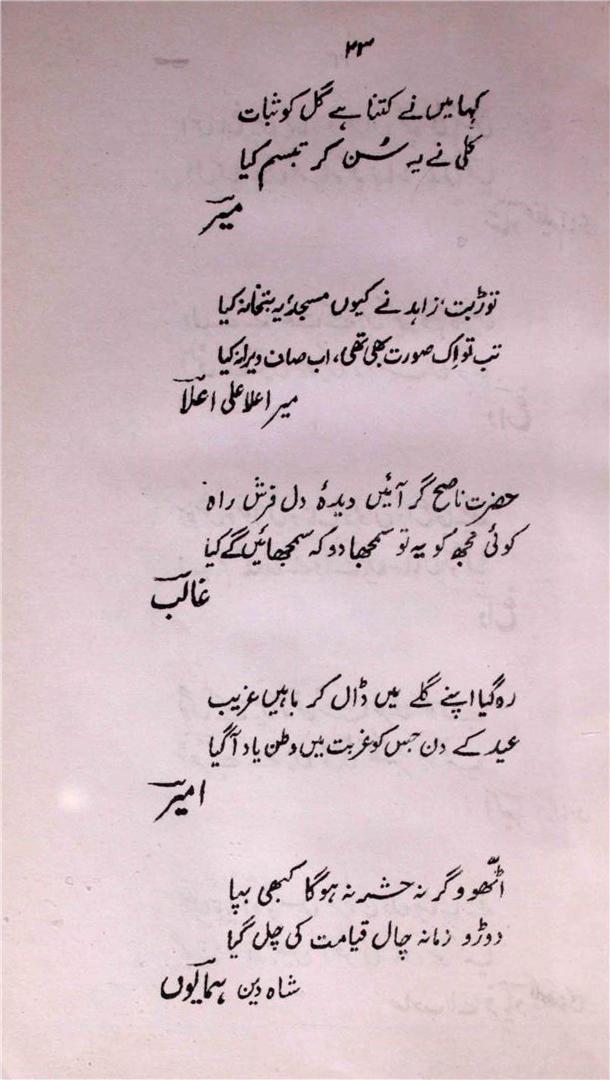 ۲۳
کہا میں نے کتنا ہے گل کو ثبات
کلی نے یہ سُن کر تبسم کیا
میرؔ
توڑ بت، زاہد نے کیوں مسجد یہ بتخانہ کیا
تب تو اِک صورت بھی تھی، اب صاف ویرانہ کیا
میر اعلا علی اعلاؔ
حضرت ناصح گر آئیں دیدۂ دل فرش راہ
کوئی مجھ کو یہ تو سمجھا دو کہ سمجھائیں گے کیا
غالبؔ
رہ گیا اپنے گلے میں ڈال کر باہیں غریب
عید کے دن جس کو غربت میں وطن یاد آگیا
امیرؔ
اٹّھو وگرنہ حشر نہ ہوگا کبھی بپا
دوڑو زمانہ چال قیامت کی چل گیا
شاہ دین ہمایوںؔ